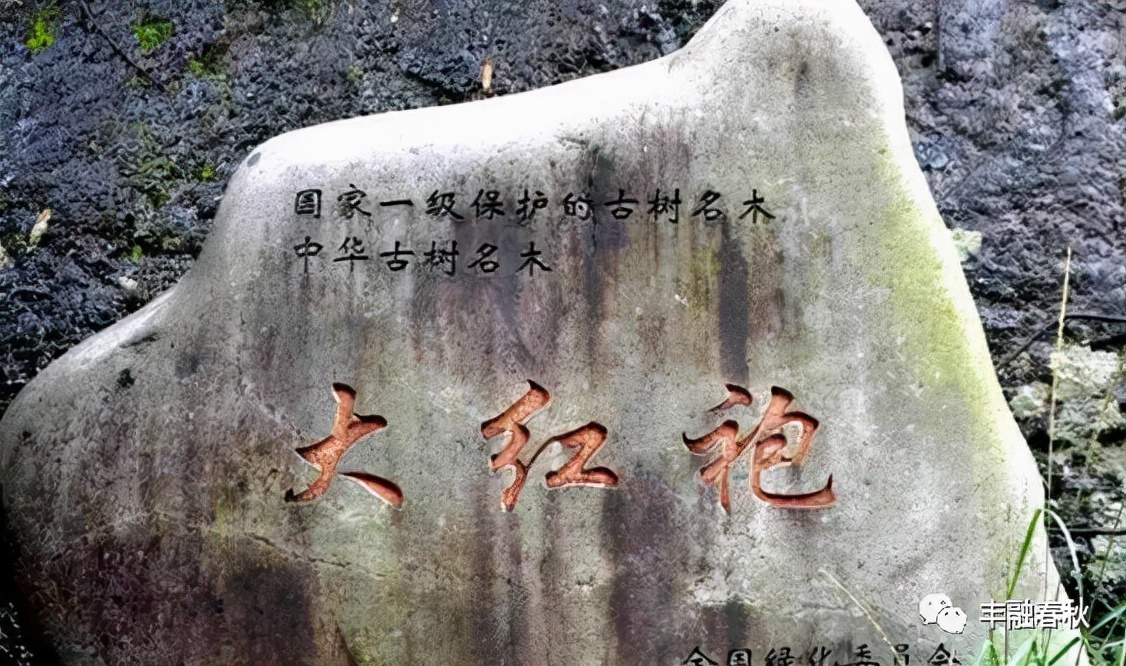 国家一级保护的古树名木
中华古树名木
大红袍
全国绿化委员会
丰融春秋